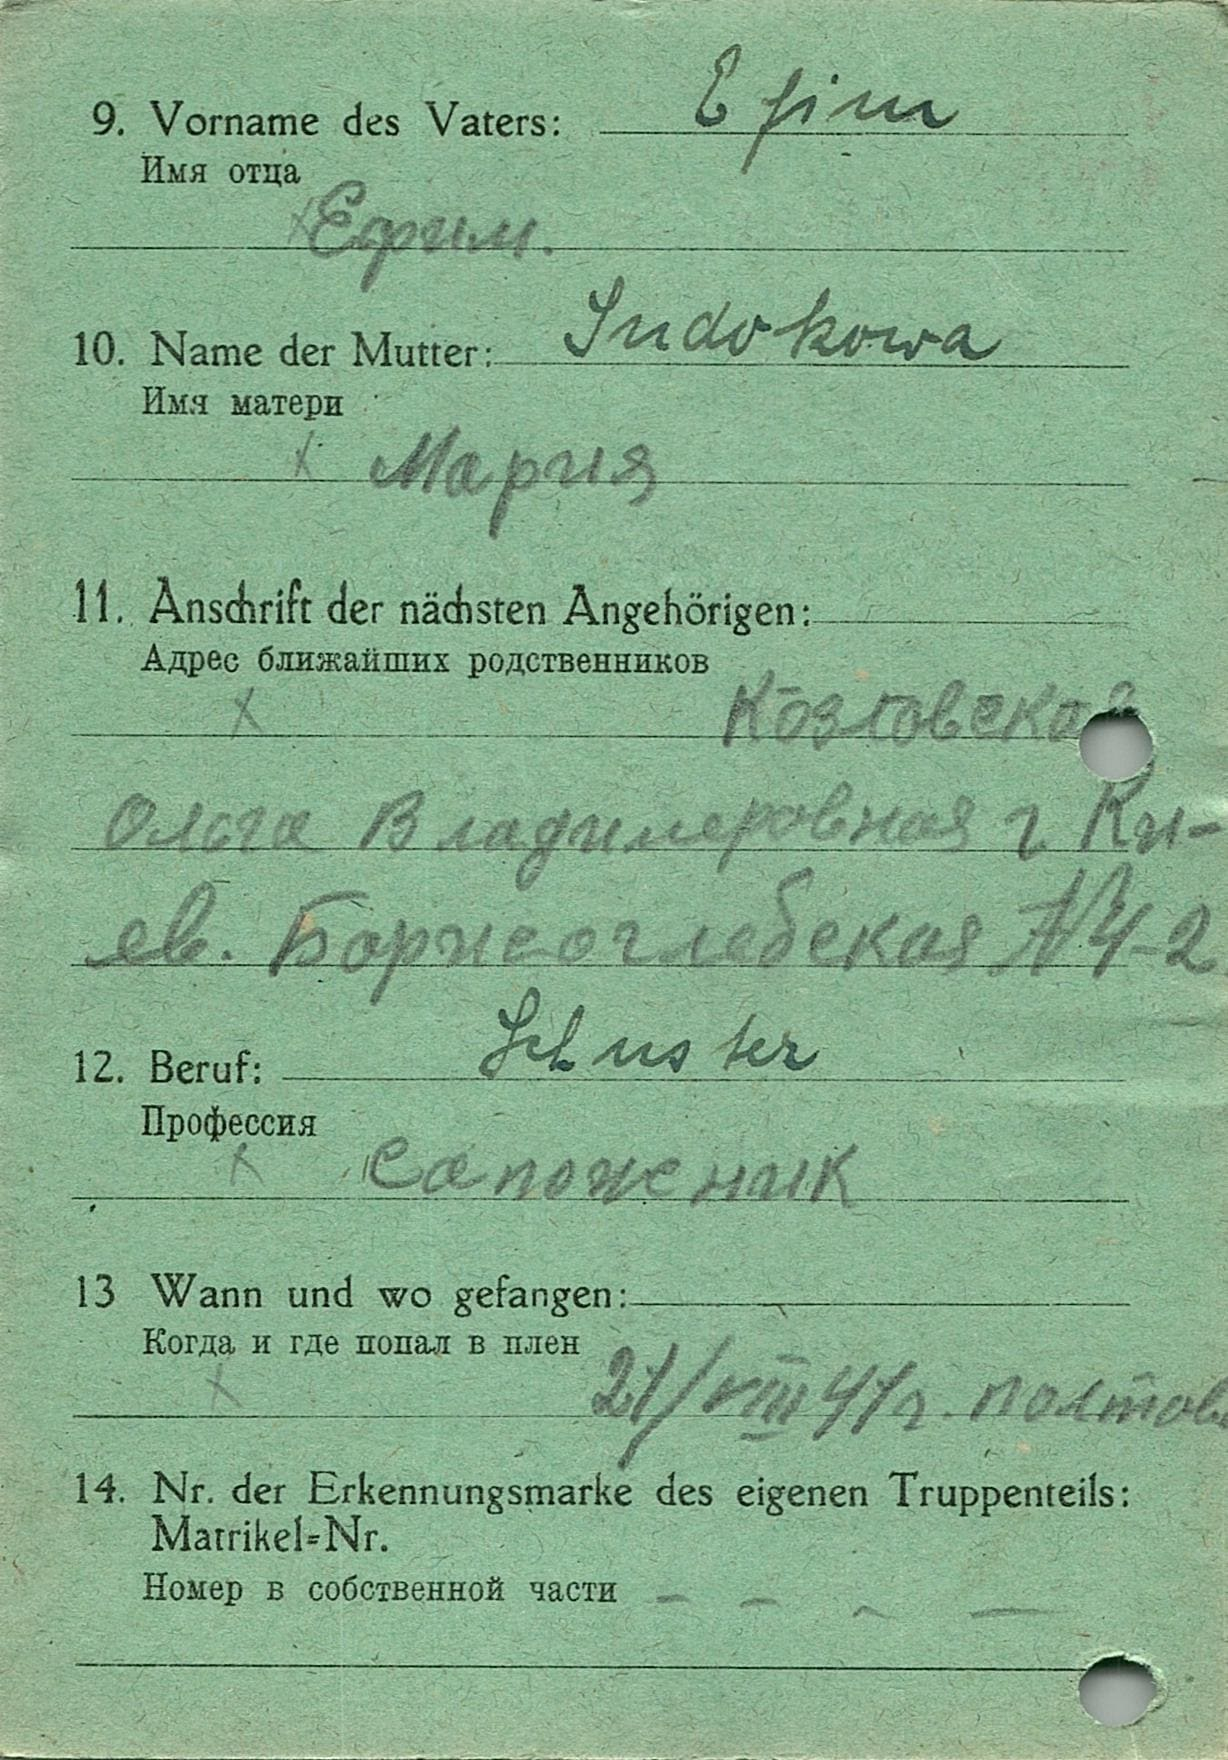 9. Vorname des Vaters: Efim
Имя отца
х Ефим.
10. Name der Mutter: Sudokowa
Имя матери
х Мария
11. Anschrift der nächsten Angehörigen:
Адрес ближайших родственников
х Козловская
Ольга Владимеровная г Ки-
ев. Борисоглебская №4-2
12. Beruf: Schuster
Профессия
х Сапоженик
13 Wann und wo gefangen:
Когда и где попал в плен
х 21/VIII 41г. Полтов
14. Nr. der Erkennungsmarke des eigenen Truppenteils:
Matrikel=Nr.
Номер в собственной части – – – –